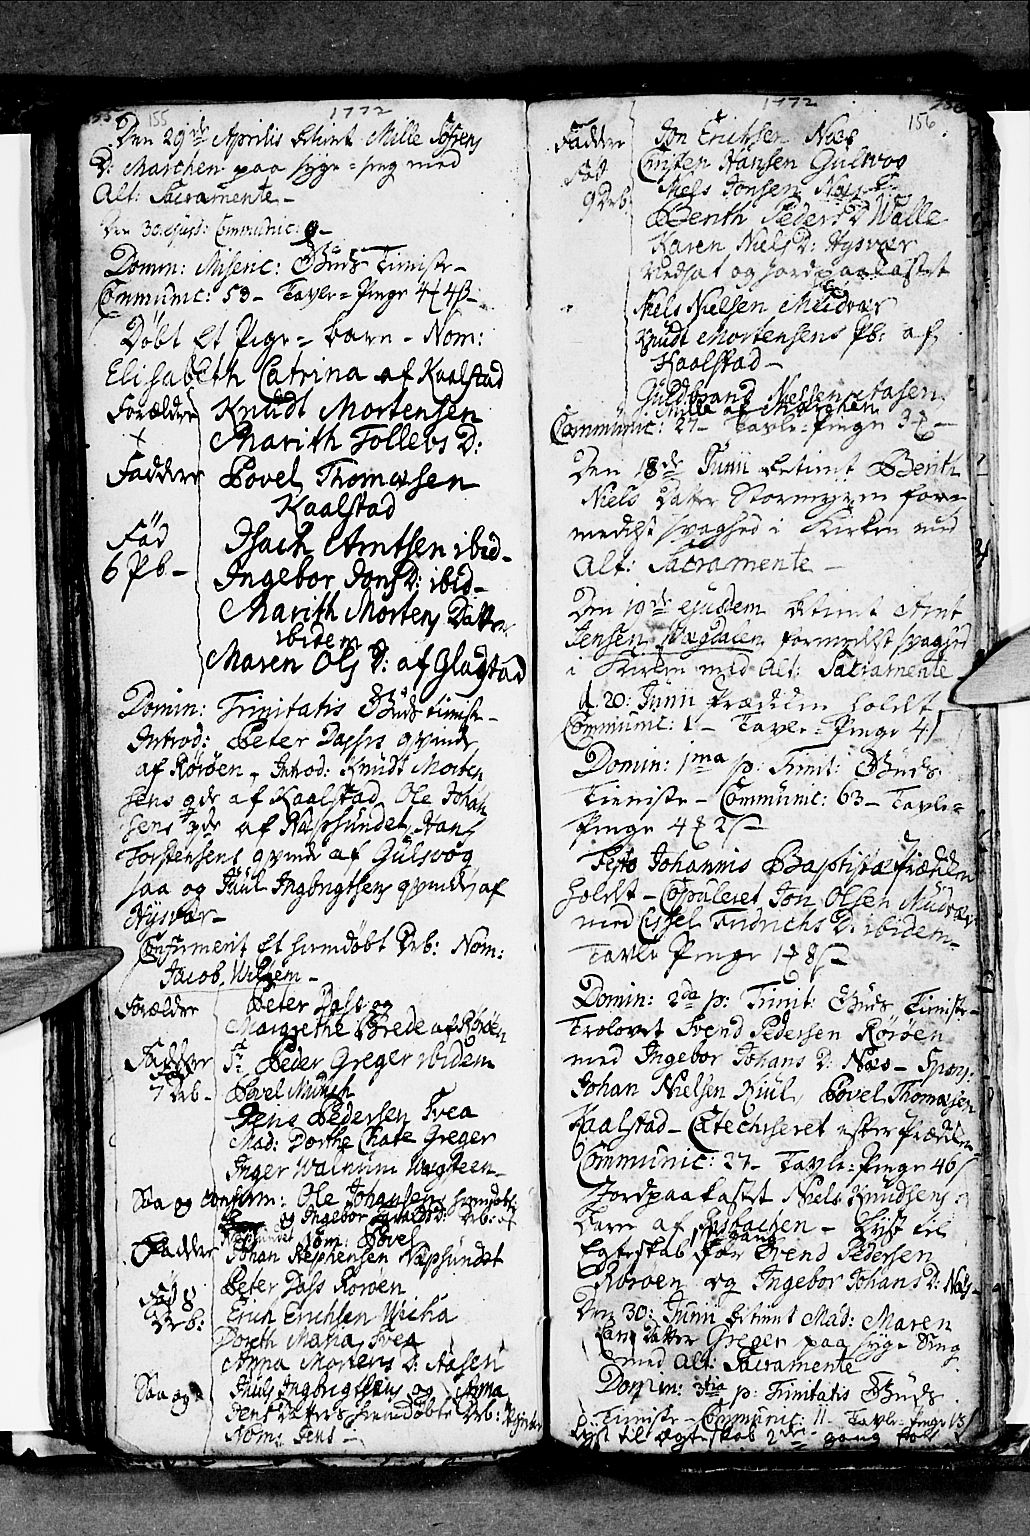 155
1772
Den 29de Aprilis betient Mille Sofrens
D: Marchen paa syge-seng med
Alt: Sacramente-
Den 30 ejusd: Communic: 9-
Domin: Misenc: Guds Tieniste-
Communic: 53- Tavle-Penge
Döbt et Pige-barn- Nom:
Elisabeth Catrina af Kaalstad
Forældre Knudt Mortensen
Marith Tollevs D:
Faddere Povel Thomesen
Kaalstad
Föd Isach Arntsen ibid-
6 Pb- Ingebor Jons D: ibid-
Marith Mortens Datter
ibidem
Maren Ols D: af Glagstad
Domin: Trinitatis Guds tieniste-
Introd: Peter Dasses qvinde
af Röröen, Introd: Knudt Morten
sens qde af Kaalstad, Ole Johan
sens qde af Næssundet, Hans
Torstensens qvinde af Gulsvog
saa og Paul Ingbrigtsens qvinde af
Hysvær-
Confirmerit et hiemdöbt Drb: Nom:
Jacob Willem-
Forældre Peter Dass og
Margrethe Brede af Röröen
Faddere Sr Peder Greger ibidem
7 Drb- Povel Munch
Jens Pedersen Tvea
Mad: Dorthe Chate Greger
Inger Walnum
Saa og confirm: Ole Johansens hiemdöbte
og Ingebor Drb: af
Nom: Povel
Faddere Johan Rephensen Næssundet
Peter Dass Röröen
Föd 8 Erich Erichsen
Drb: Doreth Maria Tvea
Anna Mortens D: Aasen
Saa og Pauls Ingbrigtsens og Anna
Jens Daters hiemdöbte Drb: Hysvær
Nom: Jens-
1772
156
Faddere Jon Erichsen Næs
Föd Christen Hansen Gulsvog
9 Drb Niels Jonsen Næs
Berith Peders D: Walle
Karen Niels D: Hysvær
Vedsat og Jordpaakastet
Niels Nielsen Mudvær
Knudt Mortensens Pb: af
Kaalstad-
Guldbrand Nielsen Aasen
Mille af Marchen
Communic: 27- Tavle-Penge
Den 18de Junii betient Berith
Niels Datter formo-
medelst svaghed i Kirken med
Alt: Sacramente-
Den 19de ejusdem betient Arnt
Jensen Magdalen formedelst svaghed
i Kirken med Alt: Sacramente
d. 20: Junii Prædiken holdt
Communic: Tavle-Penge
Domin: 1ma p: Trinit: Guds
Tieniste- Communic: 63- Tavle-
Penge
Festo Johannis Baptistæ Prædiken
holdt- Copuleret Jon Olsen Mudvær
med Cissel Fridrichs D: ibidem-
Tavle Penge
Domin: 2da p: Trinit: Guds Tieniste-
Trolovet Svend Pedersen Röröen
med Ingebor Johans D: Næs- Spon:
Johan Nielsen Kiul, Povel Thomesen
Kaalstad- Catechiseret efter Prædiken
Communic: 27- Tavle-Penge
Jordpaakastet Niels Knudsens
barn af - Lyst til
Egteskab gang for Svend Pedersen
Röröen og Ingebor Johans D: Næs-
Den 30: Junii betient Mad: Maren
Datter Greger paa syge Seng
med Alt: Sacramente
Domin: 3tia p: Trinitatis Guds
Tieniste- Communic: 11- Tavle-Penge
Lyst til Egteskab 2den gang